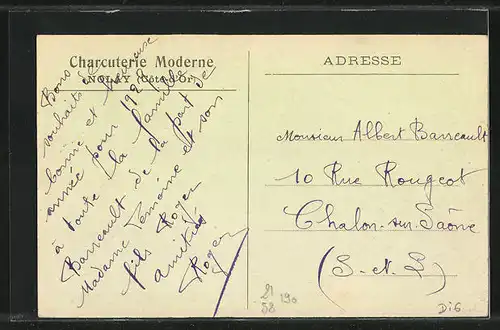 Charcuterie Moderne
NOLAY (Côte-d'Or)
Bons
souhaits de heureuse
bonne et
année pour 1928
à toute la famille
Barreault de la part de
Madame Lemoine et son
fils Roger
amitiés
Roger
ADRESSE
Monsieur Albert Barreault
10 Rue Rougeot
Chalon-sur-Saône
(S-et-L)
190
Di6